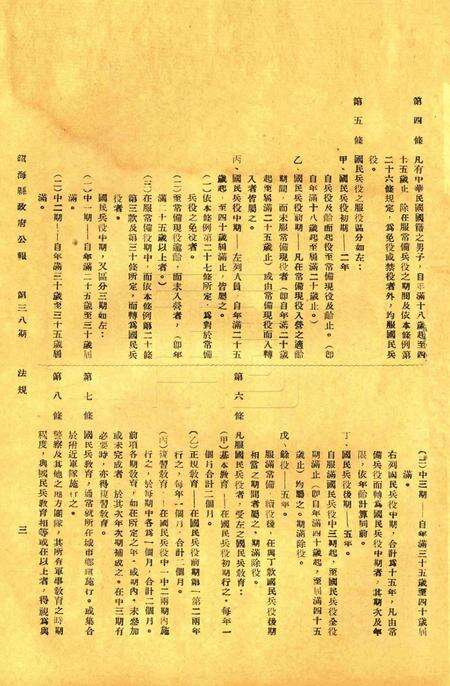 第四條　凡有中華民國國籍之男子，自年滿十八歲起至四
十五歲止　除在服常備兵役之期間及依本條例第
二十六條規定，為免役或禁役者外，均服國民兵
役。
第五條　國民兵役之服役區分如左：
甲、國民兵役初期——二年
自兵役及齡而起役至常備現役及齡止。（即
自年滿十八歲起至屆滿二十歲止。）
乙、國民兵役前期——凡在常備現役入營之適齡
期間，而未服常備現役者（即自年滿二十歲
起至屆滿二十五歲止）或由常備現役而入轉
入者皆屬之。
丙　國民兵役中期　左列人員，自年滿二十五
歲起　至四十歲屆滿止，皆屬之。
（一）依本條例第二十七條所定，為對於常備
兵役之免役者。
（二）至常備現役適齡，而未入營者，（即年
滿二十五歲以上者。）
（三）在常備役期中，而依本條例第二十條
第三款及第三十條所定，而轉為國民兵
役者。
國民兵役中期，又區分三期如左：
（一）中一期——自年滿二十五歲至三十歲屆
滿。
（二）中二期——自年滿三十歲至三十五歲屆
滿。
鎮海縣政府公報　第三八期　法規　三
（三）中三期——自年滿三十五歲至四十歲屆
滿。
右列國民兵役中期，合計為十五年，凡由常
備兵役而轉為國民兵役中期者，其期次及年
限，依年齡計算同前。
丁、國民兵役後期——五年。
自服滿國民兵役中三期起，至國民兵役全役
期滿止（即自年滿四十歲起，至屆滿四十五
歲止）均屬之。期滿除役。
戊、餘役——五年。
服滿常備　續役後，在與丁款國民兵役後期
相當之期間者屬之。期滿除役。
第六條　凡服國民兵役者，受左之國民兵教育：
（甲）基本教育——在國民兵役初期行之，每年一
個月合計二個月。
（乙）正規教育——在國民兵役前期第一第二兩年
行之，每年一個月，合計二個月。
（丙）複習教育——在國民兵役中一中二兩期內施
行之，於每期中各為一個月，合計二個月。
前項各期教育，如在所定之年，或期內，未參加
或未完成者　於其次年次期補成之。在中三期有
必要時，亦得複習教育。
第七條　國民兵教育，通常就所在城市鄉鎮施行。或集合
於附近軍隊施行之。
第八條　警察及其他之地方團隊，其所有軍事教育之時期
程度，與國民兵教育相等或在以上者，得視為與